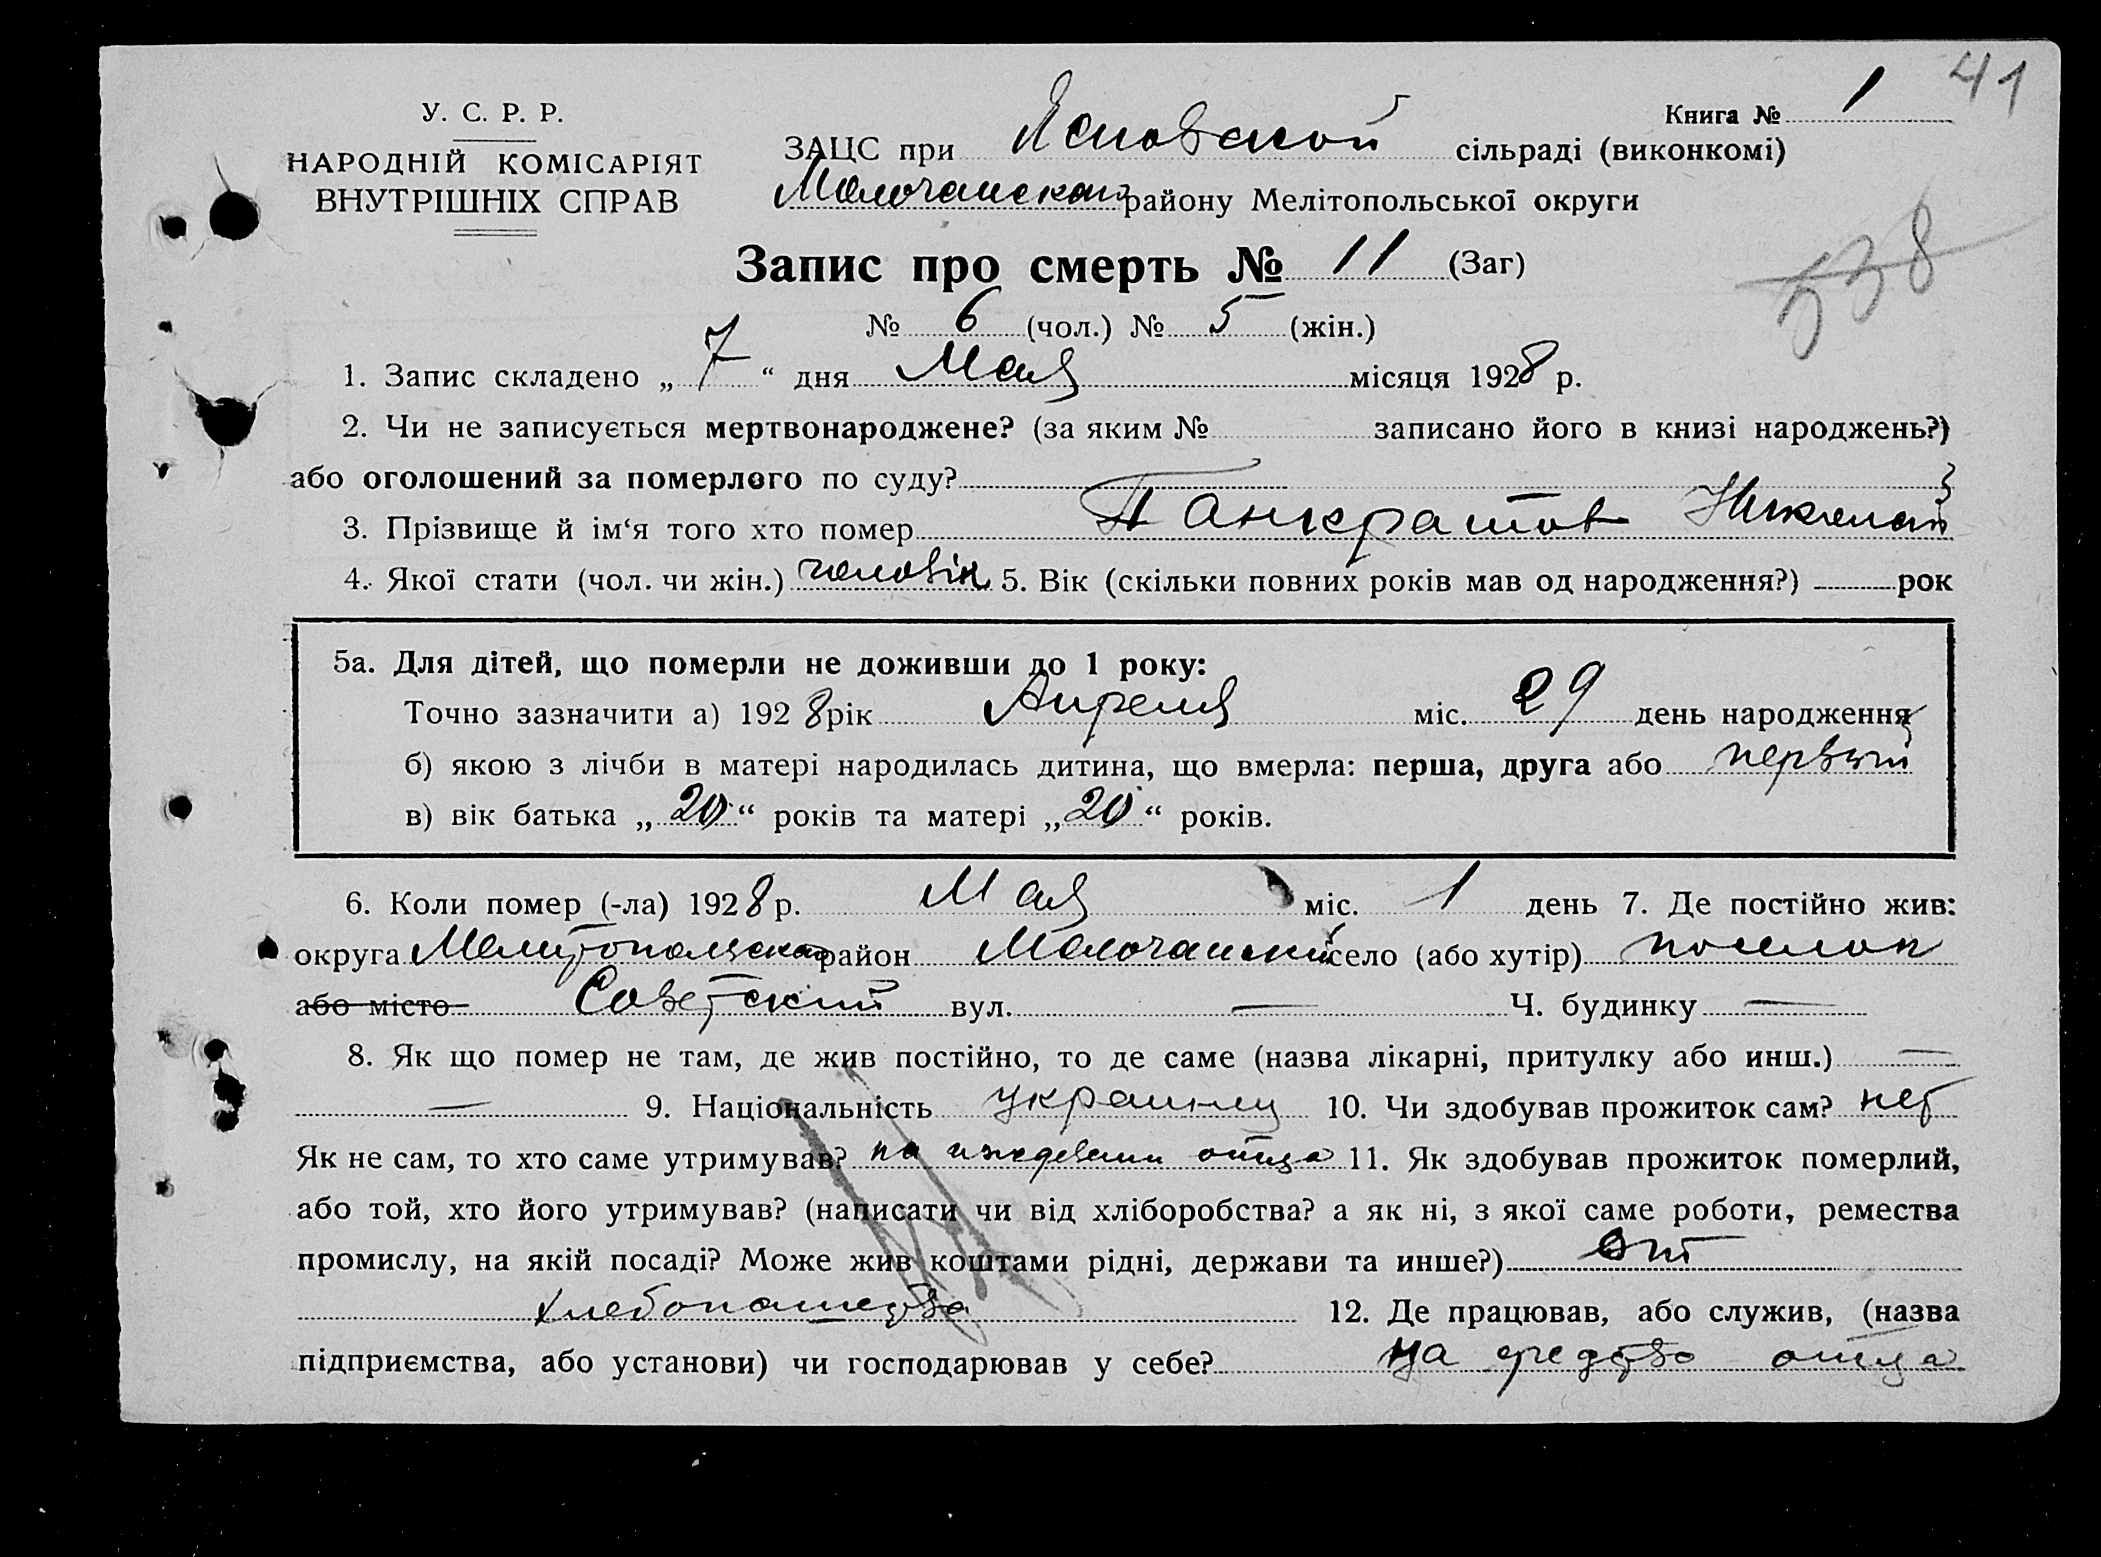 41
У. С. Р. Р.
НАРОДНІЙ КОМІСАРІЯТ
ВНУТРІШНІХ СПРАВ
Книга № 1
ЗАЦС при Ясновской сільраді (виконкомі)
Молочанского району Мелітопольської округи
538
Запис про смерть № 11 (Заг)
№ 6 (чол.) № 5 (жін.)
1. Запис складено „ 7 “ дня Мая місяця 1928 р.
2. Чи не записується мертвонароджене? (за яким № записано його в книзі народжень?)
або оголошений за померлого по суду?
3. Прізвище й ім‘я того хто помер Панкратов Николай
4. Якої стати (чол. чи жін.) человік 5. Вік (скільки повних років мав од народження?) рок
5а. Для дітей, що померли не доживши до 1 року:
Точно зазначити а) 1928 рік Апреля міс. 29 день народження
б) якою з лічби в матері народилась дитина, що вмерла: перша, друга або первый
в) вік батька „ 20 “ років та матері „ 20 “ років.
6. Коли помер (-ла) 1928 р. Мая міс. 1 день 7. Де постійно жив:
округа Мелитопольская район Молочанский село (або хутір) поселок
або місто Советский вул. — Ч. будинку —
8. Як що помер не там, де жив постійно, то де саме (назва лікарні, притулку або инш.) —
— 9. Національність украинец 10. Чи здобував прожиток сам? нет
Як не сам, то хто саме утримував? на иждевении отца 11. Як здобував прожиток померлий,
або той, хто його утримував? (написати чи від хліборобства? а як ні, з якої саме роботи, ремества
промислу, на якій посаді? Може жив коштами рідні, держави та инше?) от
хлебопашества 12. Де працював, або служив, (назва
підприємства, або установи) чи господарював у себе? на средство отца